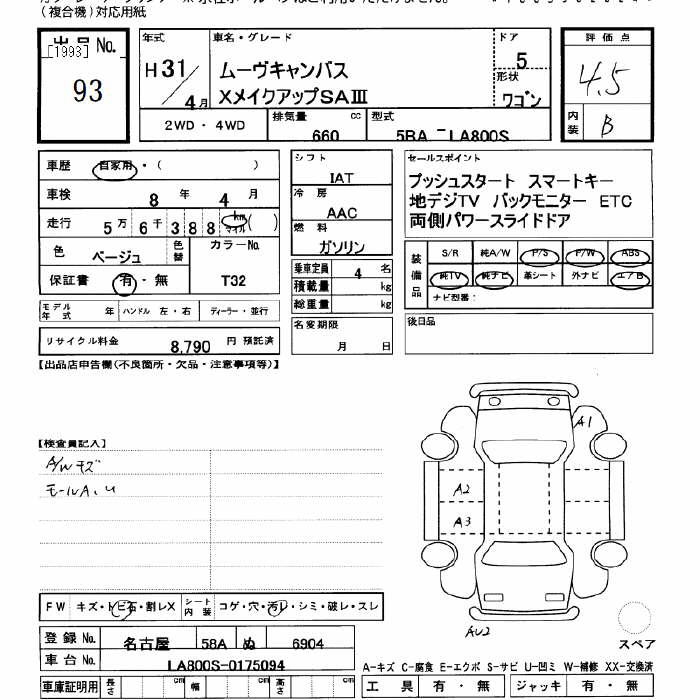 (複合機)対応用紙
出品 No.
[1993]
93
年式
H 31/4月
車名・グレード
ムーヴキャンバス
XメイクアップSAⅢ
ドア
5
形状
ワゴン
2WD・4WD
排気量 660 cc
型式 5BA-LA800S
評価点
4.5
内装 B
車歴 自家用・( )
車検 8年 4月
走行 5万6千388 km マイル ( )
色 ベージュ
色替
カラーNo. T32
保証書 有・無
モデル年式 年
ハンドル 左・右
ディーラー・並行
リサイクル料金 8,790 円 預託済
シフト
IAT
冷房
AAC
燃料
ガソリン
乗車定員 4 名
積載量 kg
総重量 kg
名変期限
月 日
セールスポイント
プッシュスタート スマートキー
地デジTV バックモニター ETC
両側パワースライドドア
装備品
S/R 純A/W P/S P/W ABS
純TV 純ナビ 革シート 外ナビ エアB
ナビ型番:
後日品
【出品店申告欄(不良箇所・欠品・注意事項等)】
【検査員記入】
A/Wキズ
モールA、U
A1
A2
A3
AU2
スペア
FW キズ・トビ石・割レX
シート内装 コゲ・穴・汚レ・シミ・破レ・スレ
登録No. 名古屋 58A ぬ 6904
車台No. LA800S-0175094
車庫証明用 長さ cm 幅 cm 高さ cm
A-キズ C-腐食 E-エクボ S-サビ U-凹ミ W-補修 XX-交換済
工具 有・無
ジャッキ 有・無